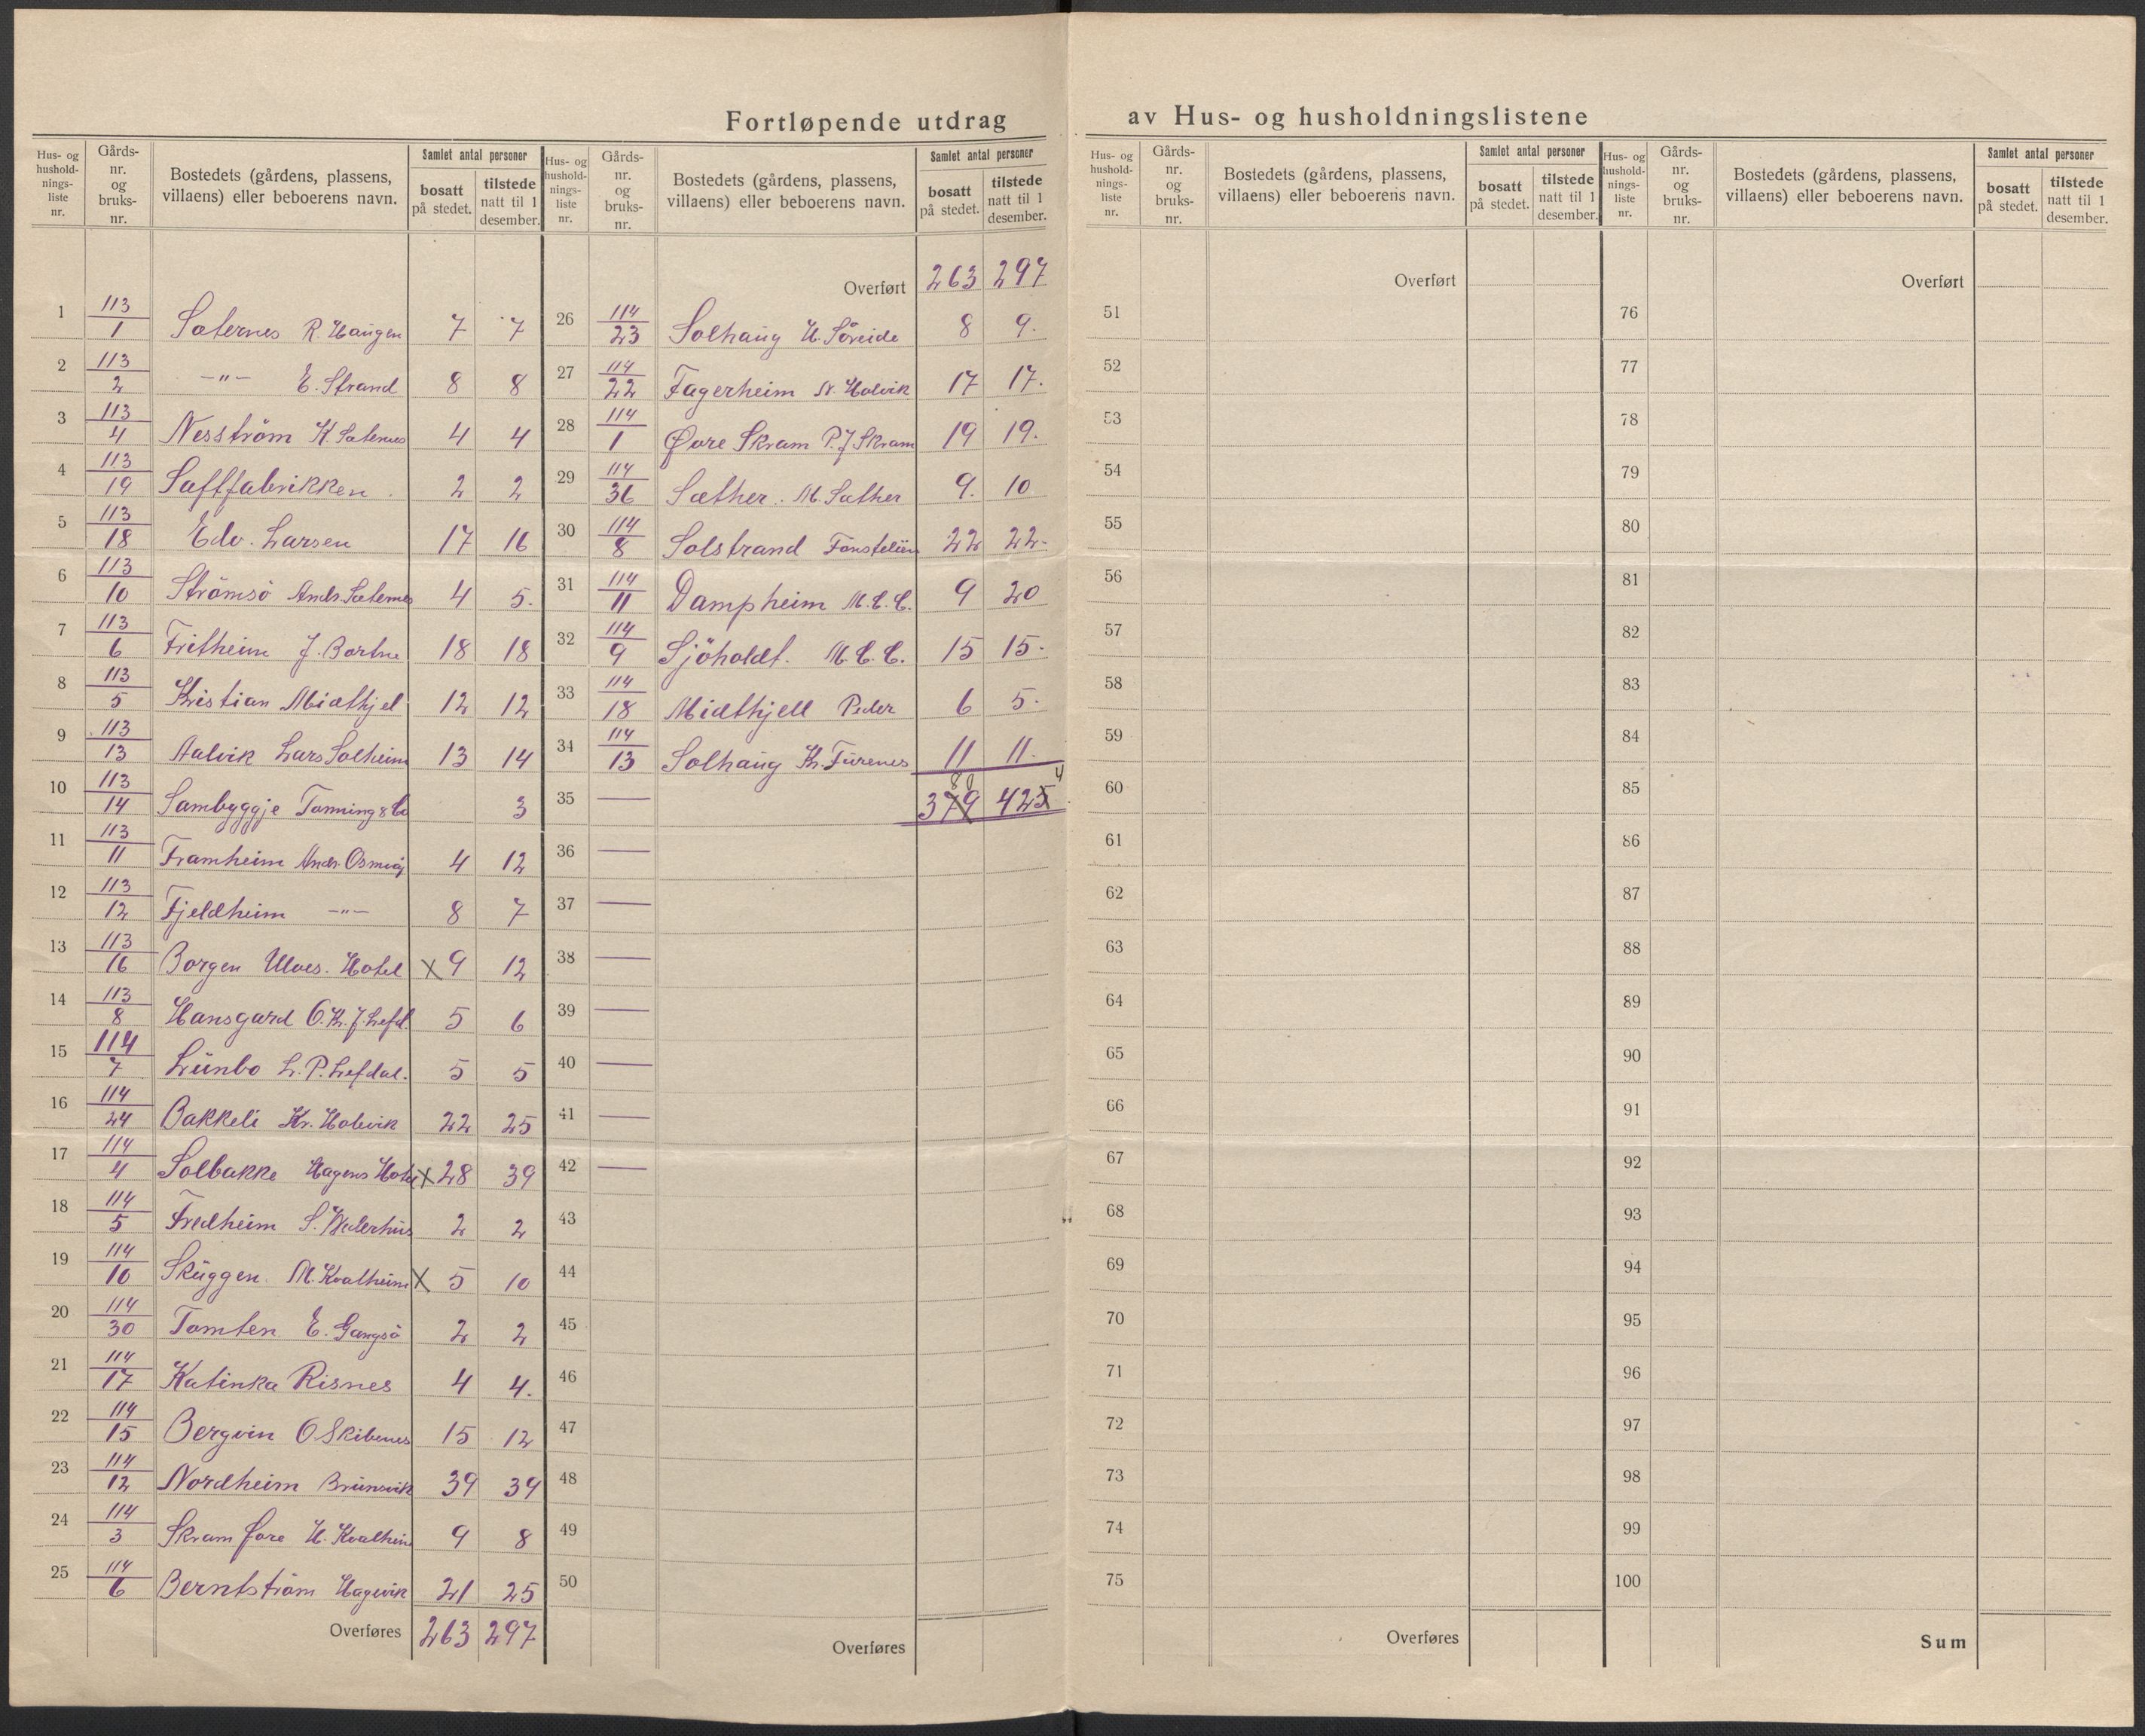 Fortløpende utdrag av Hus- og husholdningslistene
Hus- og hushold-nings-liste nr. | Gårds-nr. og bruks-nr. | Bostedets (gårdens, plassens, villaens) eller beboerens navn. | Samlet antal personer | bosatt på stedet. | tilstede natt til 1 desember.
Hus- og hushold-nings-liste nr. | Gårds-nr. og bruks-nr. | Bostedets (gårdens, plassens, villaens) eller beboerens navn. | Samlet antal personer | bosatt på stedet. | tilstede natt til 1 desember.
1 113/1 Sæternes R. Haugen 7 7
2 113/2 -"- E. Strand 8 8
3 113/4 Nesström K. Sæternes 4 4
4 113/19 Saftfabrikken 2 2
5 113/18 Edv. Larsen 17 16
6 113/10 Strömsö Andr. Sæternes 4 5.
7 113/6 Fritheim J. Bortne 18 18
8 113/5 Kristian Midthjel 12 12
9 113/13 Aalvik Lars Solheim 13 14
10 113/14 Sambyggje Tonning & Co 3
11 113/11 Framheim Andr. 4 12
12 113/12 Fjeldheim -"- 8 7
13 113/16 Borgen Hotel x 9 12
14 113/8 Hansgard O. Kr. J. Lefd. 5 6
15 114/7 Lünbo L. P. Lefdal. 5 5
16 114/24 Bakkeli Kr. Holevik 22 25
17 114/4 Solbakke Hagens Hotel x 28 39
18 114/5 Fredheim S. 2 2
19 114/10 Skuggen. M. Kvalheim x 5 10
20 114/30 Tomten E. Gangsö 2 2
21 114/17 Katinka Risnes 4 4.
22 114/15 Bergvin O Skibenes 15 12
23 114/12 Nordheim Brunsvik 39 39
24 114/3 Skram øore H. Kvalheim 9 8
25 114/6 Berntström Hagevik 21 25
Overføres 263 297
Overført 263 297
26 114/23 Solhaug H. Söreide 8 9.
27 114/22 Fagerheim N. Holvik 17 17.
28 114/1 Øore Skram P. J Skram 19 19.
29 114/36 Sæther. M. Sæther 9. 10
30 114/8 Solstrand 22 22.
31 114/11 Dampheim M. E. C. 9 20
32 114/9 Sjöholdt. M. E. C. 15 15.
33 114/18 Midthjell Peder 6 5.
34 114/13 Solhaug Kr. Furenes 11 11.
80 4
35 — 379 425
36 —
37 —
38 —
39 —
40 —
41 —
42 —
43
44
45
46
47
48
49
50
Overføres
Hus- og hushold-nings-liste nr. | Gårds-nr. og bruks-nr. | Bostedets (gårdens, plassens, villaens) eller beboerens navn. | Samlet antal personer | bosatt på stedet. | tilstede natt til 1 desember.
Overført
51
52
53
54
55
56
57
58
59
60
61
62
63
64
65
66
67
68
69
70
71
72
73
74
75
Overføres
Hus- og hushold-nings-liste nr. | Gårds-nr. og bruks-nr. | Bostedets (gårdens, plassens, villaens) eller beboerens navn. | Samlet antal personer | bosatt på stedet. | tilstede natt til 1 desember.
Overført
76
77
78
79
80
81
82
83
84
85
86
87
88
89
90
91
92
93
94
95
96
97
98
99
100
Sum